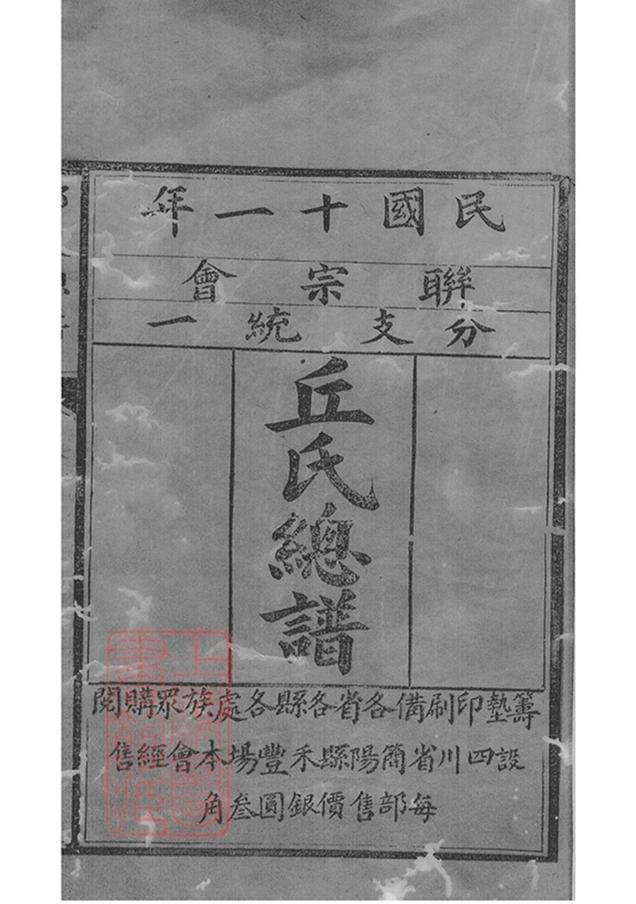 民國十一年
聯宗會
分支統一
丘氏總譜
籌墊印刷備各省各縣各處族眾購閱
設四川省簡陽縣禾豐場本會經售
每部售價銀圓叁角